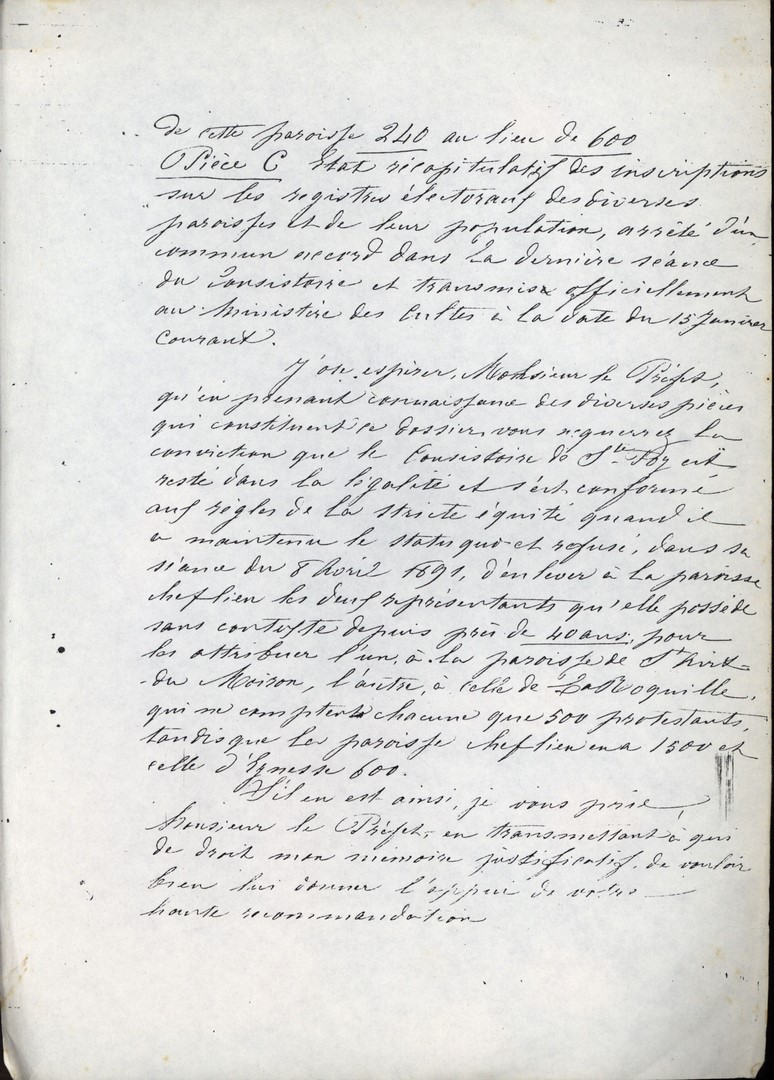 de cette paroisse 240 au lieu de 600
Pièce C Etat récapitulatif des inscriptions
sur les registres électoraux des diverses
paroisses et de leur population, arrêté d'un
commun accord dans la dernière séance
du Consistoire et transmise officiellement
au Ministère des Cultes à la date du 15 Janvier
courant.
J'ose espérer, Monsieur le Préfet,
qu'en prenant connaissance des diverses pièces
qui constituent ce dossier, vous acquerrez la
conviction que le Consistoire de Ste Foy est
resté dans la légalité et s'est conformé
aux règles de la stricte équité quand il
a maintenu le statu quo et refusé, dans sa
séance du 8 Avril 1891, d'enlever à la paroisse
chef lieu les deux représentants qu'elle possède
sans conteste depuis près de 40 ans, pour
les attribuer l'un, à la paroisse de St Avit
du Moiron, l'autre, à celle de La Roquille,
qui ne comptent chacune que 500 protestants,
tandis que la paroisse chef lieu en a 1500 et
celle d'Eynesse 600.
S'il en est ainsi, je vous prie,
Monsieur le Préfet, en transmettant à qui
de droit mon mémoire justificatif, de vouloir
bien lui donner l'appui de votre
haute recommandation